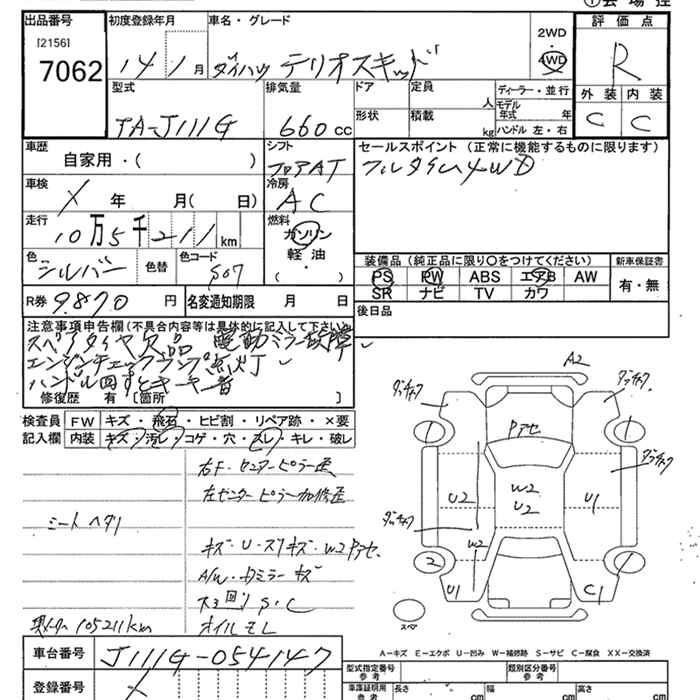 ①会場控
出品番号
[2156]
7062
初度登録年月
14 / 1 月
車名・グレード
ダイハツ テリオスキッド
2WD
4WD
評価点
R
外装 内装
C C
型式
TA-J111G
排気量
660 cc
ドア
定員
人
形状
積載
kg
ディーラー・並行
モデル
年式 年
ハンドル 左・右
車歴
自家用・( )
シフト
フロアAT
セールスポイント (正常に機能するものに限ります)
フルタイム4WD
車検
X 年 月( 日)
冷房
AC
走行
10万5千211km
燃料
ガソリン
軽油
( )
色
シルバー
色替
色コード
S07
装備品 (純正品に限り○をつけてください)
PS PW ABS エアB AW
SR ナビ TV カワ
新車保証書
有・無
R券 9.870 円
名変通知期限 月 日
後日品
注意事項申告欄(不具合内容等は具体的に記入して下さい)
スペアタイヤ欠品 電動ミラー故障
エンジンチェックランプ点灯
ハンドル回すとキーキー音
修復歴 有 〔箇所 〕
検査員記入欄
FW キズ・飛石・ヒビ割・リペア跡・×要
内装 キズ・汚レ・コゲ・穴・スレ・キレ・破レ
右F・センターピラー歪
左センターピラー加修歪
シートヘタリ
キズ・U・スリキズ・W2 Pアセ
A/W・Dミラーキズ
下回りS・C
オイルモレ
105211km
A2
ダッチャク
ダッチャク
Pアセ
1
1
ダッチャク
U2
W2
U2
U1
ダッチャク
W2
2
1
U1
C1
スペア
A-キズ E-エクボ U-凹み W-補修跡 S-サビ C-腐食 XX-交換済
車台番号
J111G-054147
登録番号
X
型式指定番号
参考
類別区分番号
参考
車庫証明用
参考
長さ cm
幅 cm
高さ cm